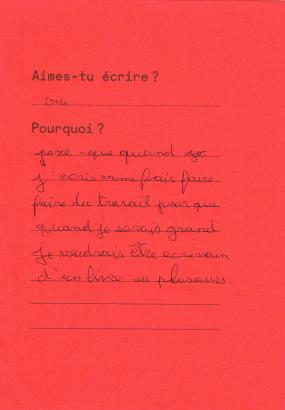 Aimes-tu écrire ?
oui
Pourquoi ?
parce-que quand
j'ecris sa me fais faire
faire du travail pour que
quand je serais grand
je voudrais être ecrivain
d'un livre ou plusieurs